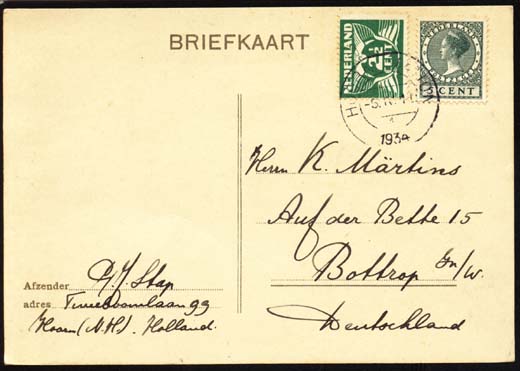 BRIEFKAART
NEDERLAND
2½
CENT
5 CENT
1934
Herrn K. Märtins
Auf der Bette 15
Bottrop i/w.
Deutschland
Afzender G.J. Stap
adres Tweeboomlaan 99
Hoorn (N.H.) Holland.